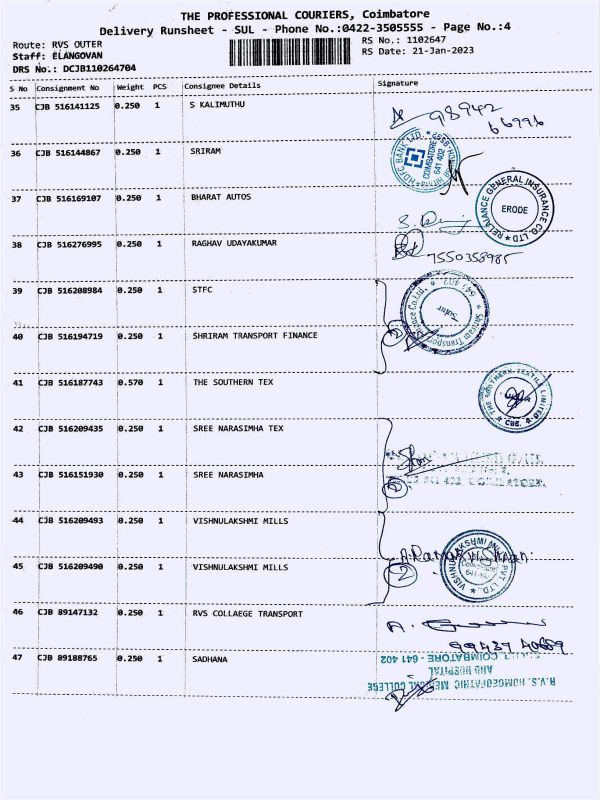 THE PROFESSIONAL COURIERS, Coimbatore
Delivery Runsheet - SUL - Phone No.:0422-3505555 - Page No.:4
Route: RVS OUTER RS No.: 1102647
Staff: ELANGOVAN RS Date: 21-Jan-2023
DRS No.: DCJB110264704
S No Consignment No Weight PCS Consignee Details Signature
35 CJB 516141125 0.250 1 S KALIMUTHU 98942
66996
36 CJB 516144867 0.250 1 SRIRAM HDFC BANK LTD. COIMBATORE 641 402
37 CJB 516169107 0.250 1 BHARAT AUTOS GENERAL INSURANCE CO. LTD ERODE
38 CJB 516276995 0.250 1 RAGHAV UDAYAKUMAR 7550358985
39 CJB 516208984 0.250 1 STFC 641 402
40 CJB 516194719 0.250 1 SHRIRAM TRANSPORT FINANCE 2 Shriram Transport Finance Co. Ltd.
41 CJB 516187743 0.570 1 THE SOUTHERN TEX THE SOUTHERN TEXTILE LIMITED CBE.
42 CJB 516209435 0.250 1 SREE NARASIMHA TEX
43 CJB 516151930 0.250 1 SREE NARASIMHA 641 402 COIMBATORE
44 CJB 516209493 0.250 1 VISHNULAKSHMI MILLS
45 CJB 516209490 0.250 1 VISHNULAKSHMI MILLS 2 VISHNULAKSHMI MILLS PVT LTD
46 CJB 89147132 0.250 1 RVS COLLAEGE TRANSPORT
99437 40669
47 CJB 89188765 0.250 1 SADHANA COIMBATORE - 641 402
AND HOSPITAL
R.V.S. HOMOEOPATHIC MEDICAL COLLEGE